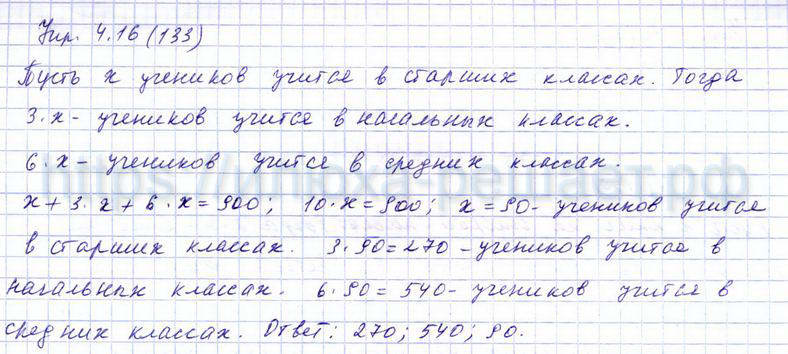 Упр. 4.16 (133)
Пусть х учеников учится в старших классах. Тогда
3·х - учеников учится в начальных классах.
6·х - учеников учится в средних классах.
х + 3·х + 6·х = 900; 10·х = 900; х = 90 - учеников учится
в старших классах. 3·90 = 270 - учеников учится в
начальных классах. 6·90 = 540 - учеников учится в
средних классах. Ответ: 270; 540; 90.